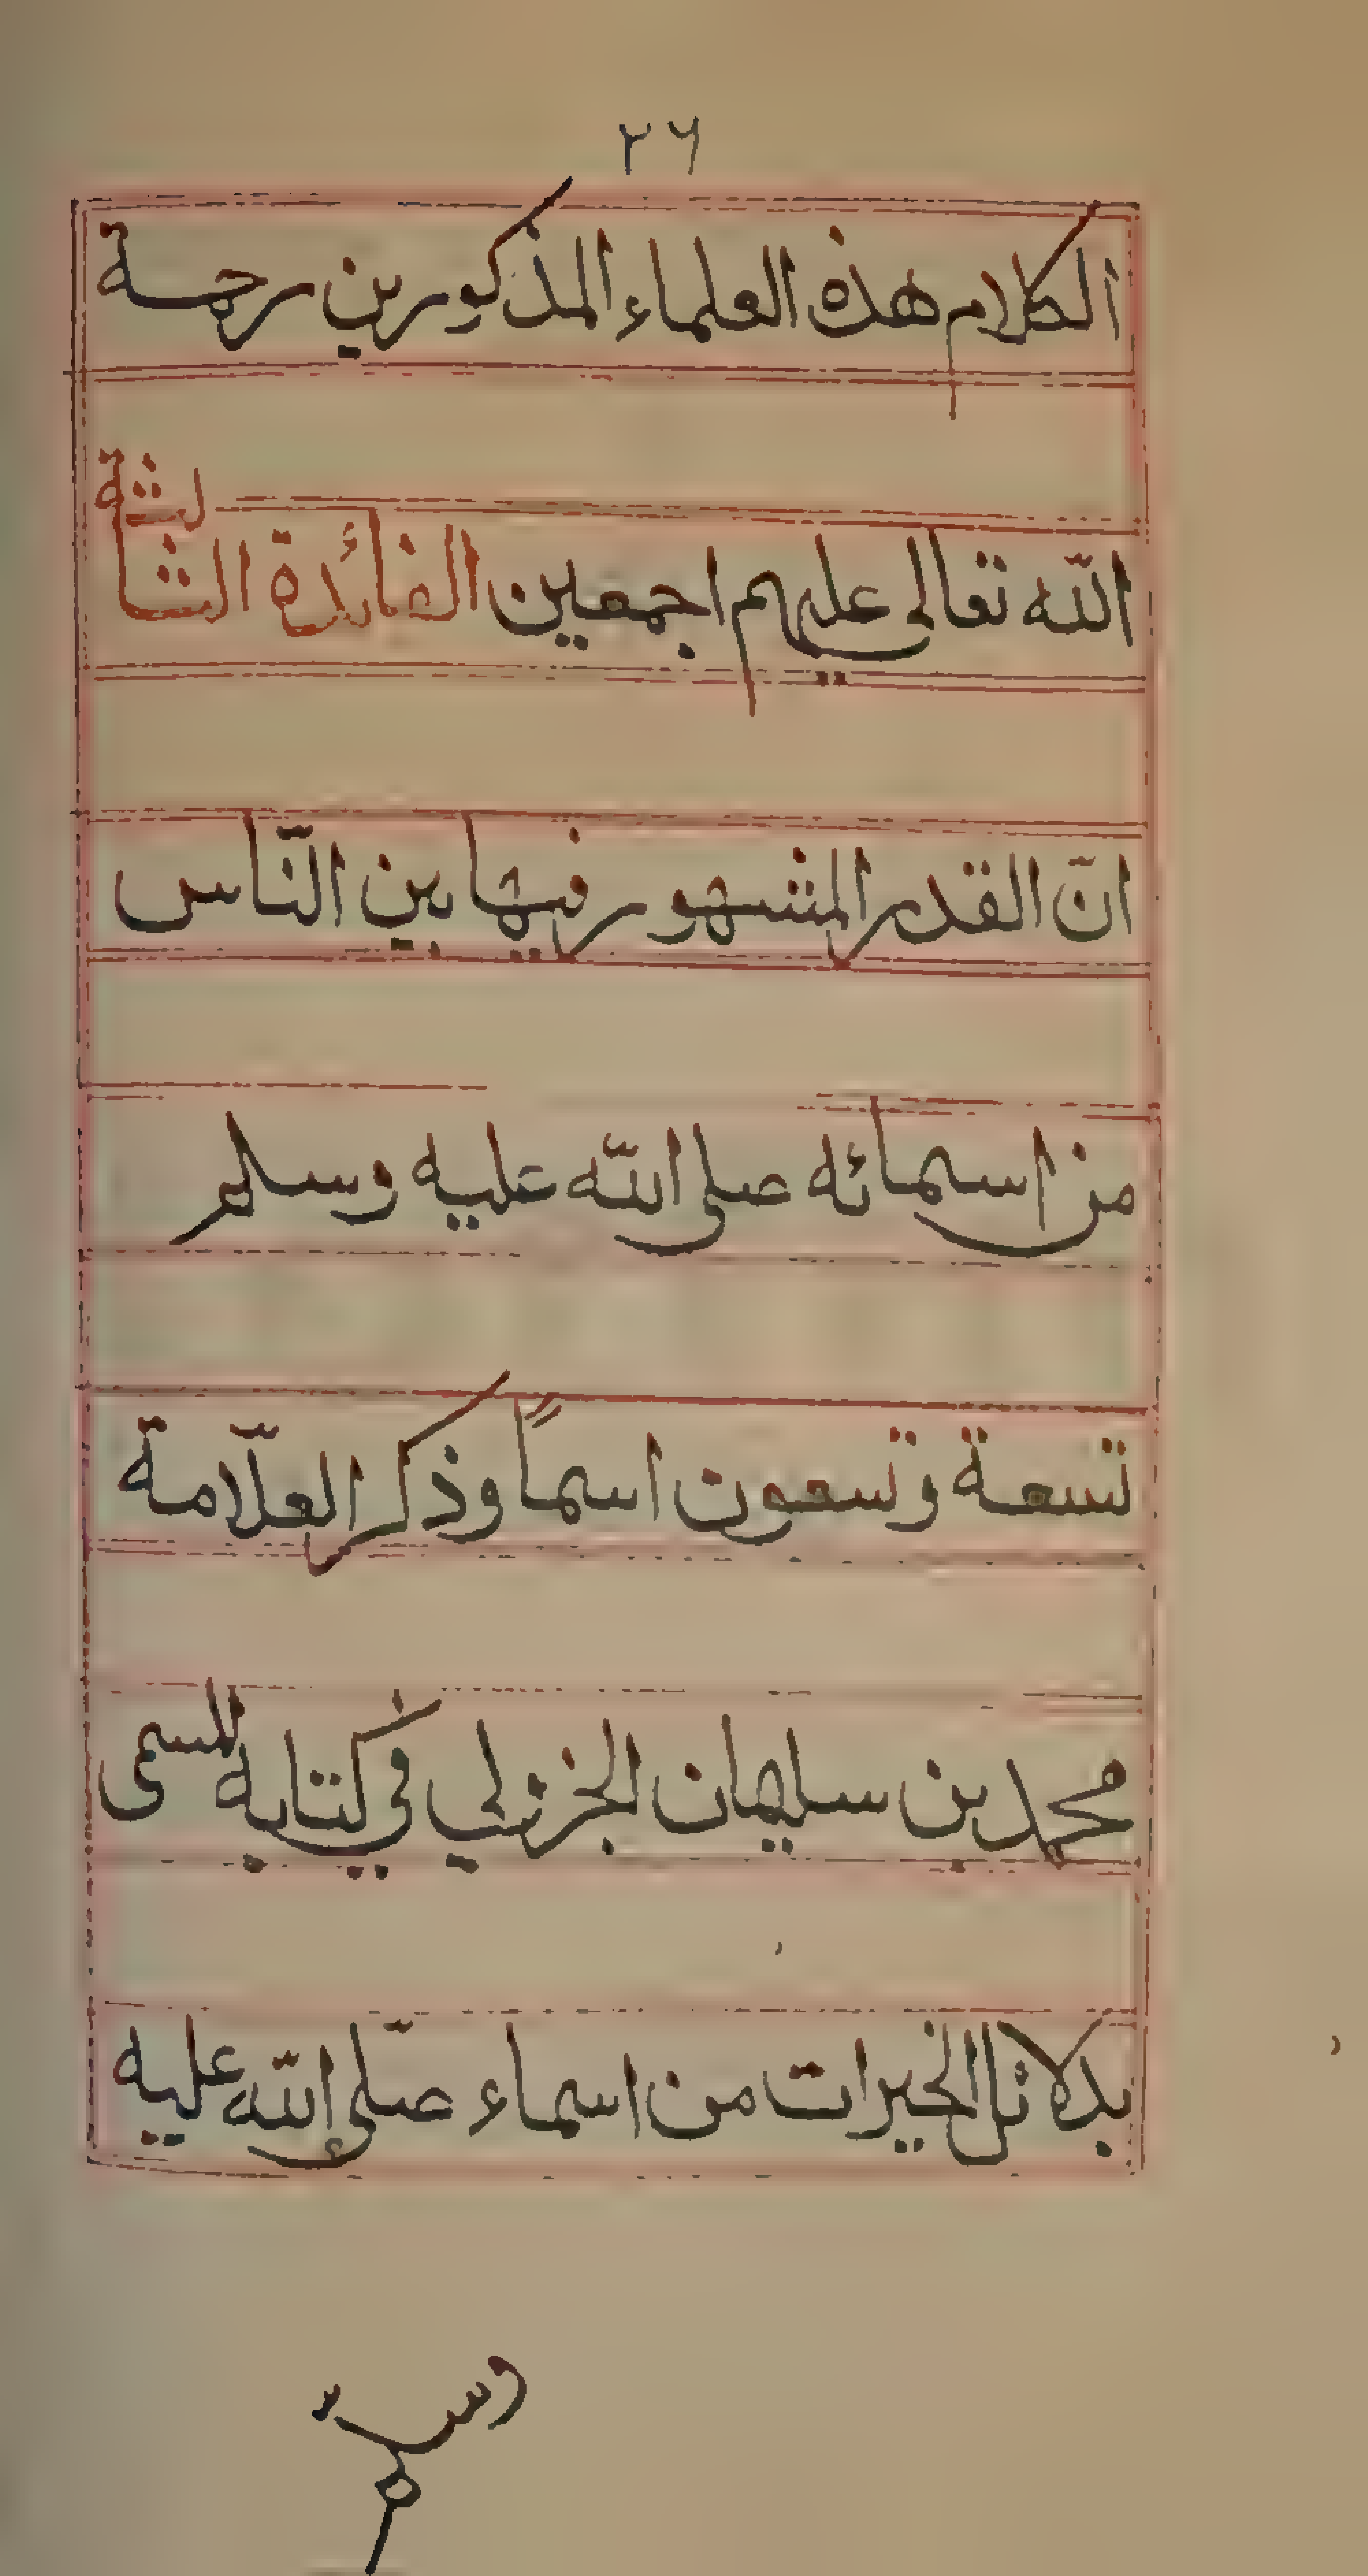 ٢٦
الكلام هذه العلماء المذكورين رحمة
الله تعالى عليهم اجمعين الفائدة الثالثة
انّ القدر المشهور فيها بين النّاس
من اسمائه صلى الله عليه وسلم
تسعة وتسعون اسماً وذكر العلّامة
محمد بن سليمان الجزولي في كتابه المسمى
بدلائل الخيرات من اسماء صلّى الله عليه
وسلم